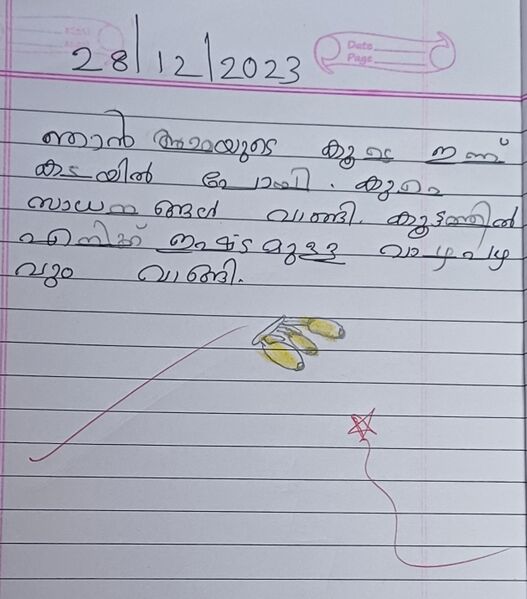 Date
Page
28/12/2023
ഞാൻ അമ്മയുടെ കൂടെ ഇന്ന്
കടയിൽ പോയി. കുറെ
സാധനങ്ങൾ വാങ്ങി. കൂട്ടത്തിൽ
എനിക്ക് ഇഷ്ടമുള്ള വാഴപഴ
വും വാങ്ങി.